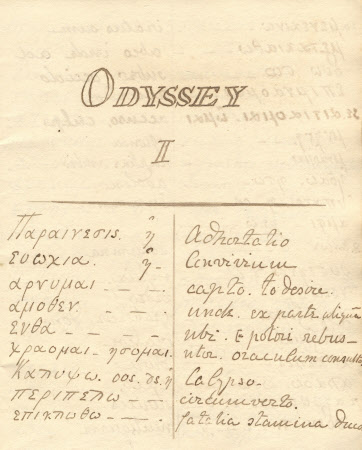 ODYSSEY
II
Παραινεσις. ἡ Adhortatio
ευωχια. ἡ - Convivium
αρνυμαι - - capto. to desire.
αμοθεν - - unde. ex parte aliqua
Ενθα - - - ubi. &
χραομαι - ησομαι. utor. oraculum consulto
Καλυψω. οος. ἡ Calypso.
περιπελω - - circumverto.
επικλωθω - - fatalia stamina duco